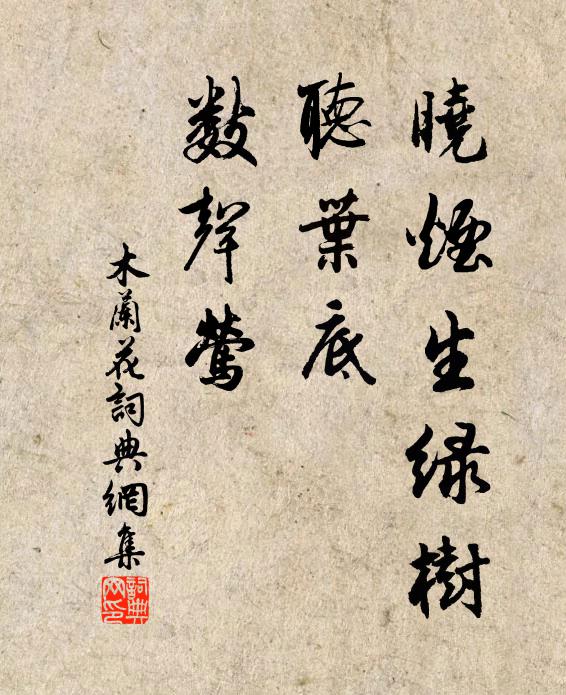 曉煙生綠樹
聽葉底
數聲鶯
木蘭花詞典網集
詞典網印